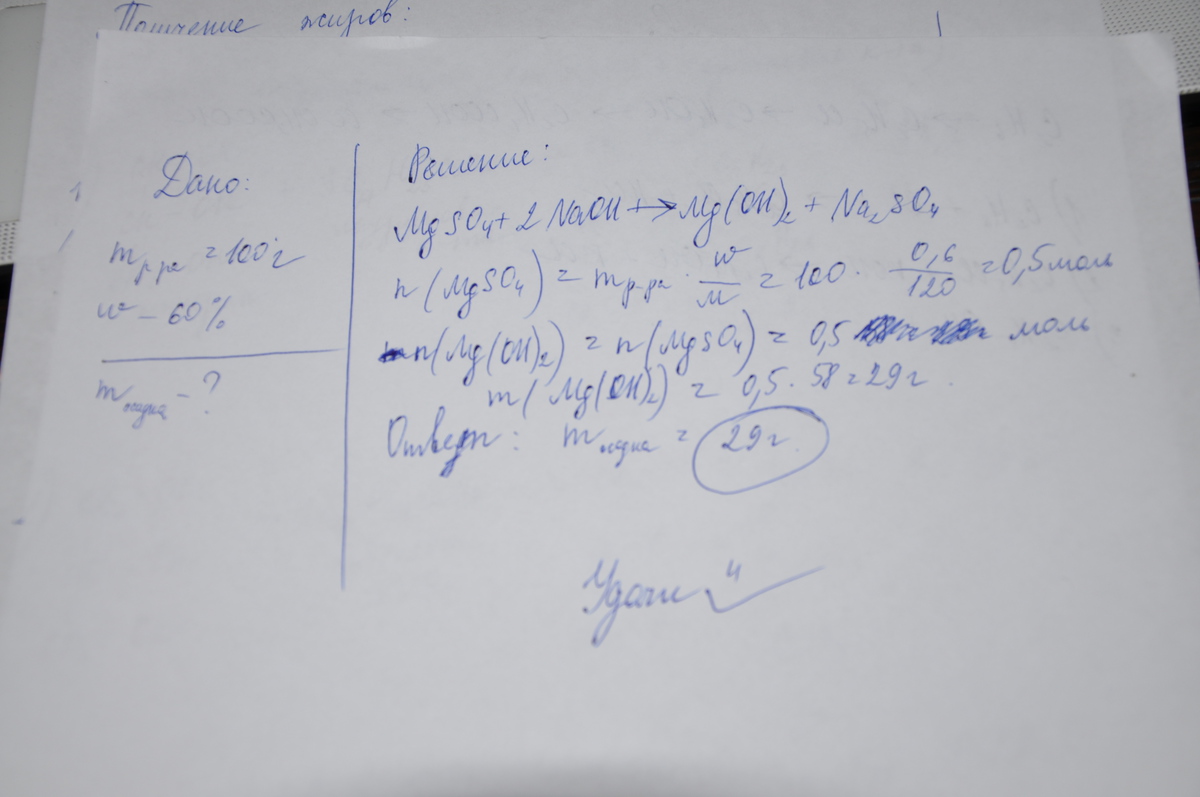 Получение жиров:
Дано:
m р-ра = 100 г
w – 60%
m осадка – ?
Решение:
MgSO₄ + 2 NaOH → Mg(OH)₂ + Na₂SO₄
n(MgSO₄) = m р-ра · w/M = 100 · 0,6/120 = 0,5 моль
n(Mg(OH)₂) = n(MgSO₄) = 0,5 моль
m(Mg(OH)₂) = 0,5 · 58 = 29 г.
Ответ: m осадка = 29 г.
Удачи